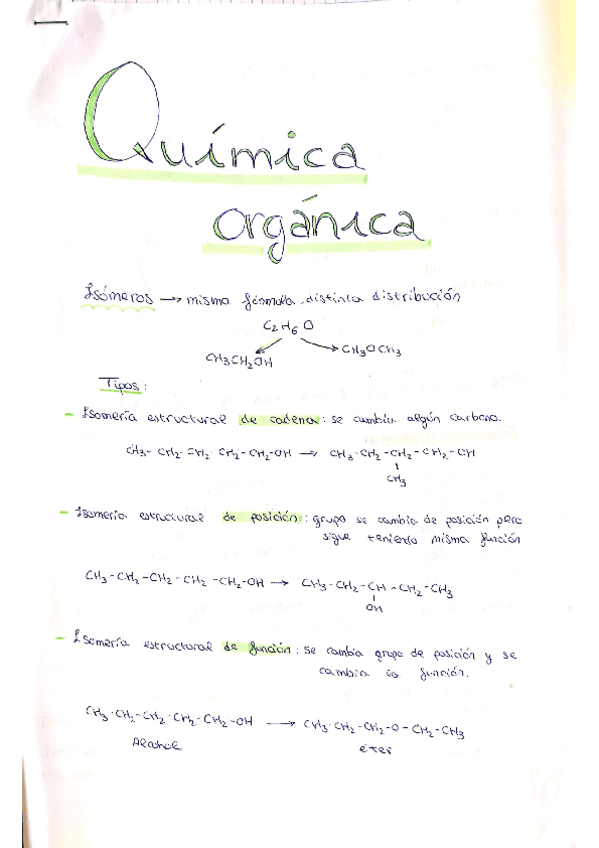 Química
orgánica
Isómeros → misma fórmula, distinta distribución
C2H6O
CH3CH2OH CH3OCH3
Tipos:
- Isomería estructural de cadena: se cambia algún carbono.
CH3-CH2-CH2-CH2-CH2-OH → CH3-CH2-CH2-CH2-CH
CH3
- Isomería estructural de posición: grupo se cambia de posición pero
sigue teniendo misma función
CH3-CH2-CH2-CH2-CH2-OH → CH3-CH2-CH-CH2-CH3
OH
- Isomería estructural de función: se cambia grupo de posición y se
cambia la función.
CH3-CH2-CH2-CH2-CH2-OH → CH3-CH2-CH2-O-CH2-CH3
Alcohol éter